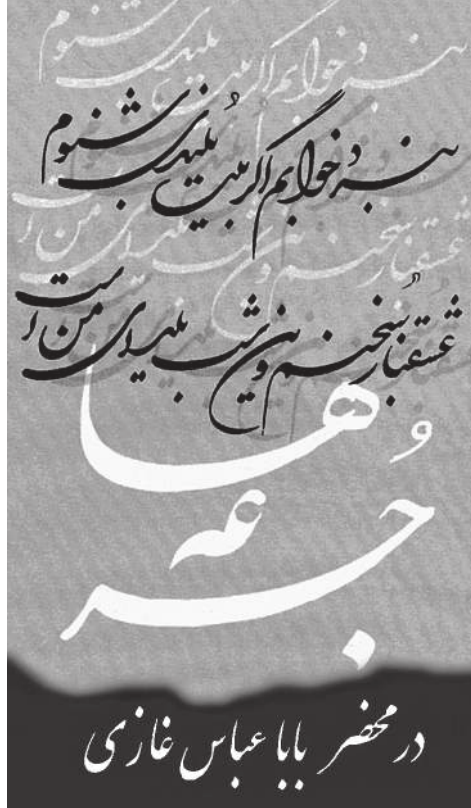 نبرد خوابم اگر بیت بلندی شنوم
عشقباز سخنم وین شب یلدای من است
جُرعه‌ها
در محضر بابا عباس غازی